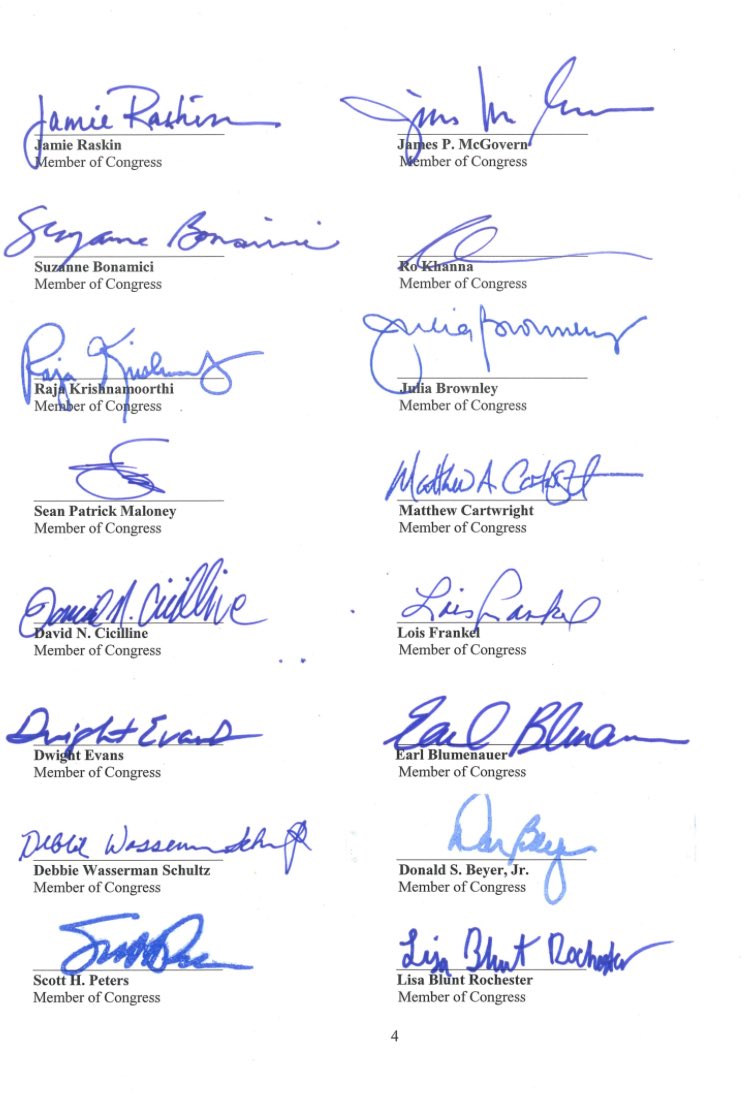 Jamie Raskin
Jamie Raskin
Member of Congress
James P. McGovern
Member of Congress
Suzanne Bonamici
Suzanne Bonamici
Member of Congress
Ro Khanna
Member of Congress
Raja Krishnamoorthi
Member of Congress
Julia Brownley
Julia Brownley
Member of Congress
Sean Patrick Maloney
Member of Congress
Matthew A. Cartwright
Matthew Cartwright
Member of Congress
David N. Cicilline
David N. Cicilline
Member of Congress
Lois Frankel
Lois Frankel
Member of Congress
Dwight Evans
Dwight Evans
Member of Congress
Earl Blumenauer
Member of Congress
Debbie Wasserman Schultz
Debbie Wasserman Schultz
Member of Congress
Don Beyer
Donald S. Beyer, Jr.
Member of Congress
Scott H. Peters
Member of Congress
Lisa Blunt Rochester
Lisa Blunt Rochester
Member of Congress
4